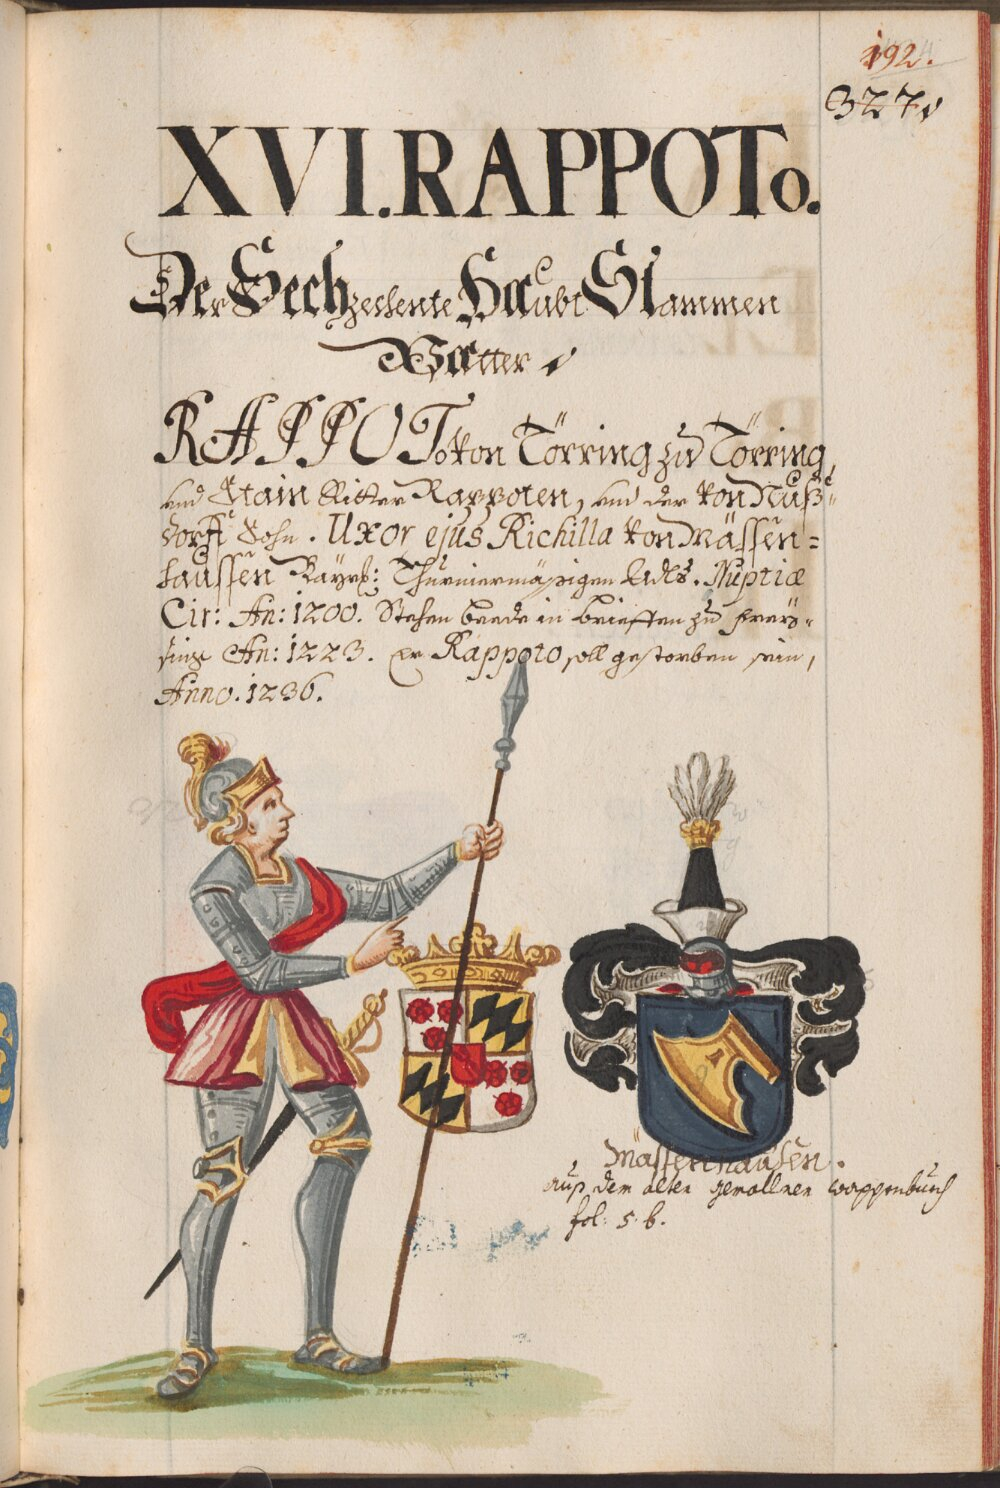 192.
327,
XVI. RAPPOTo.
Der Sechzechente Haubt Stammen
Vatter,
RAPPOTo von Törring zu Törring,
und Stain Ritter Rappoten, und der von Nuß-
dorff Sohn. Uxor ejus Richilla von Mässen=
haussen Bayrs: Thurniermäßigen Adls. Nuptiæ
Cir: An: 1200. Stehen beede in brieffen zu Freÿs-
sing An: 1223. er Rappoto soll gestorben sein,
Anno. 1236.
Mässenhausen.
auß dem alten gemallnen wappenbuch
fol: 5. b.